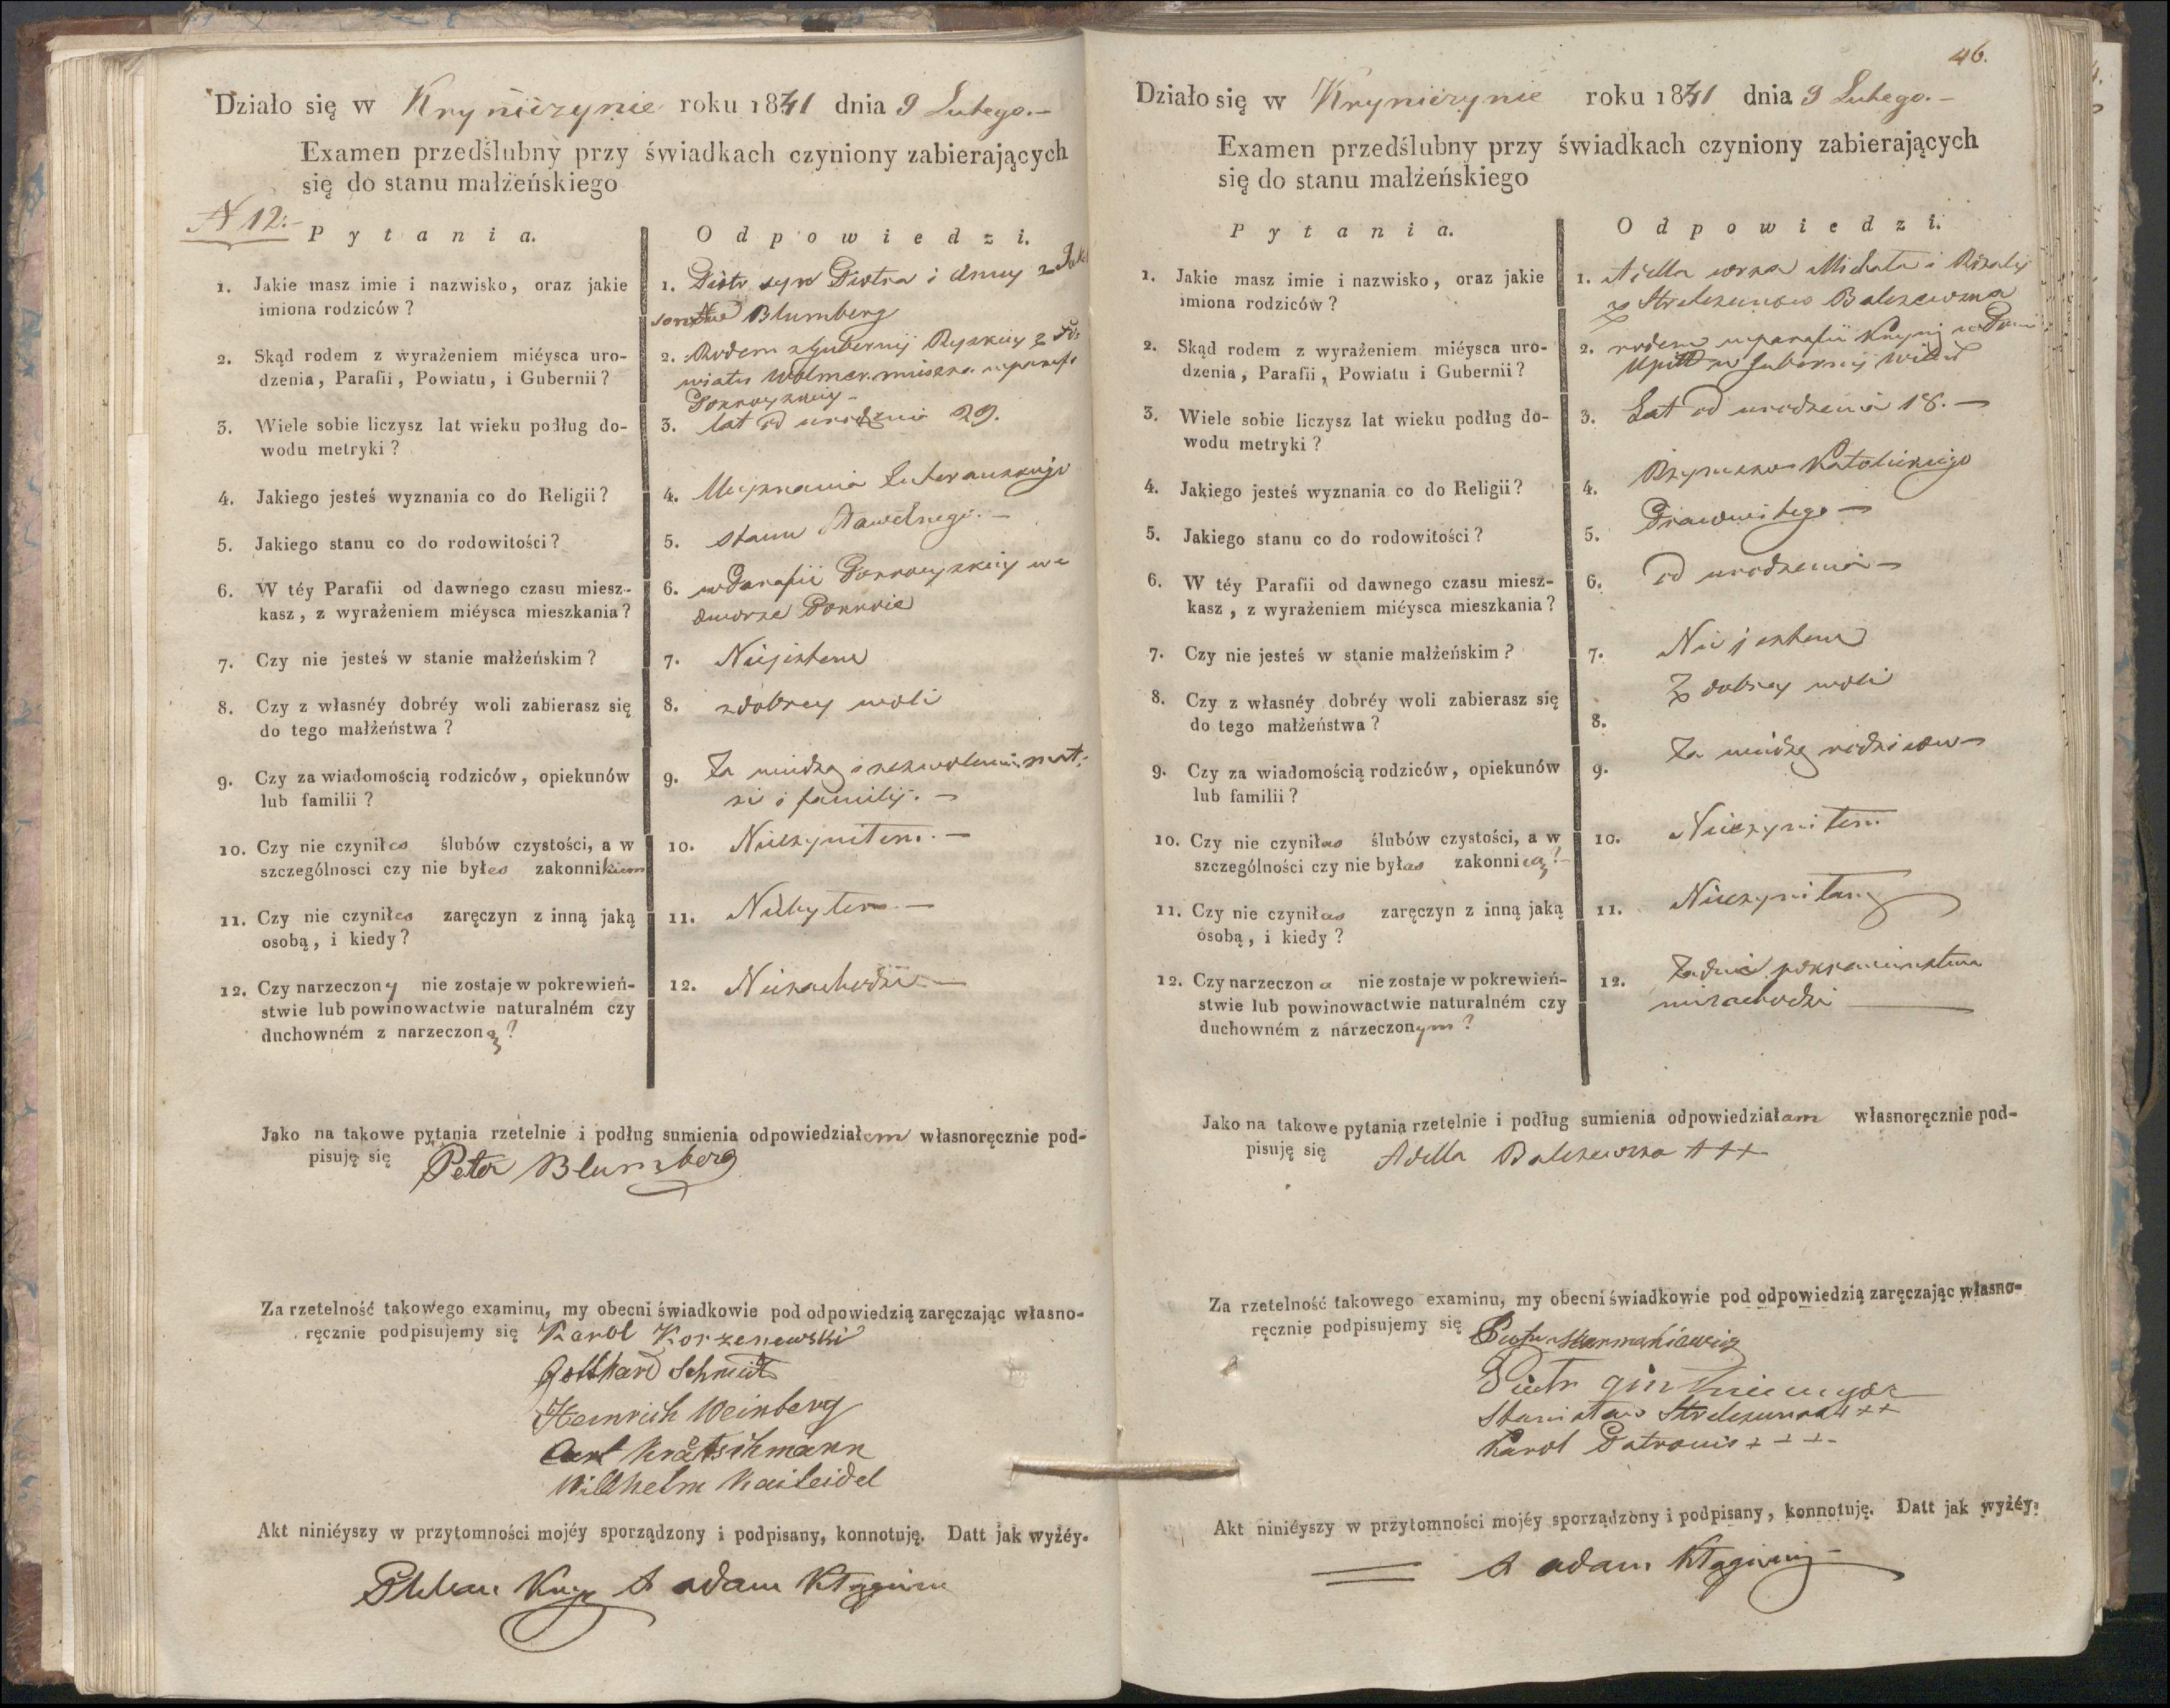 Działo się w Kryniczynie roku 1841 dnia 9 Lutego.-
Examen przedślubny przy świadkach czyniony zabierających
się do stanu małżeńskiego
N 12.-
Pytania.
Odpowiedzi.
1. Jakie masz imie i nazwisko, oraz jakie
imiona rodziców?
1. Piotr syn Piotra i Anny z Jak
sonów Blumberg
2. Skąd rodem z wyrażeniem miéysca uro-
dzenia, Parafii, Powiatu, i Gubernii?
2. Rodem z Gubernij Ryskiey z Po
wiatu Wolmar. w paraf.
3. Wiele sobie liczysz lat wieku podług do-
wodu metryki?
3. lat od urodzenia 29.
4. Jakiego jesteś wyznania co do Religii?
4. Wyznania Luteranskiego
5. Jakiego stanu co do rodowitości?
5. stanu
6. W téy Parafii od dawnego czasu miesz-
kasz, z wyrażeniem miéysca mieszkania?
6. w Parafii we
dworze
7. Czy nie jesteś w stanie małżeńskim?
7. Niejestem
8. Czy z własnéy dobréy woli zabierasz się
do tego małżeństwa?
8. z dobrey woli
9. Czy za wiadomością rodziców, opiekunów
lub familii?
9. Za wiedzą i zezwoleniem mat-
ki i familij.-
10. Czy nie czyniłes ślubów czystości, a w
szczególnosci czy nie byłes zakonnikiem
10. Nieczyniłem.-
11. Czy nie czyniłes zaręczyn z inną jaką
osobą, i kiedy?
11. Niebyłem.-
12. Czy narzeczony nie zostaje w pokrewień-
stwie lub powinowactwie naturalném czy
duchowném z narzeczoną?
12. Niezachodzi.-
Jako na takowe pytania rzetelnie i podług sumienia odpowiedziałem własnoręcznie pod-
pisuję się Peter Blumberg
Za rzetelność takowego examinu, my obecni świadkowie pod odpowiedzią zaręczając własno-
ręcznie podpisujemy się Karol Korzenewski
Gotthard Schmidt
Heinrich Weinberg
Carl Krätschmann
Willhelm Kaileidel
Akt niniéyszy w przytomności mojéy sporządzony i podpisany, konnotuję. Datt jak wyżéy.
Pleban Kry A adam
46.
Działo się w Kryniczynie roku 1841 dnia 9 Lutego.-
Examen przedślubny przy świadkach czyniony zabierających
się do stanu małżeńskiego
Pytania.
Odpowiedzi.
1. Jakie masz imie i nazwisko, oraz jakie
imiona rodziców?
1. Adella corka Michała i Rozalij
z Strelczunow Balczewska
2. Skąd rodem z wyrażeniem miéysca uro-
dzenia, Parafii, Powiatu i Gubernii?
2. rodem w parafii Kryni w Powi
Upit w Gubernij Wileń
3. Wiele sobie liczysz lat wieku podług do-
wodu metryki?
3. Lat od urodzenia 18.-
4. Jakiego jesteś wyznania co do Religii?
4. Rzymsko Katolickiego
5. Jakiego stanu co do rodowitości?
5. Prawowitego-
6. W téy Parafii od dawnego czasu miesz-
kasz, z wyrażeniem miéysca mieszkania?
6. od urodzenia-
7. Czy nie jesteś w stanie małżeńskim?
7. Nie jestem
8. Czy z własnéy dobréy woli zabierasz się
do tego małżeństwa?
8. Z dobrey woli
9. Czy za wiadomością rodziców, opiekunów
lub familii?
9. Za wiedzą rodzicow-
10. Czy nie czyniłas ślubów czystości, a w
szczególności czy nie byłas zakonnicą?-
10. Nieczyniłem
11. Czy nie czyniłas zaręczyn z inną jaką
osobą, i kiedy?
11. Nieczyniłam
12. Czy narzeczona nie zostaje w pokrewień-
stwie lub powinowactwie naturalném czy
duchowném z nárzeczonym?
12. Zadne pokrewienstwa
niezachodzi
Jako na takowe pytania rzetelnie i podług sumienia odpowiedziałam własnoręcznie pod-
pisuję się Adella Balczewska +++
Za rzetelność takowego examinu, my obecni świadkowie pod odpowiedzią zaręczając własno-
ręcznie podpisujemy się
Piotr
Stanisław +++
Karol Patronis +++
Akt niniéyszy w przytomności mojéy sporządzony i podpisany, konnotuję. Datt jak wyżéy.
A adam